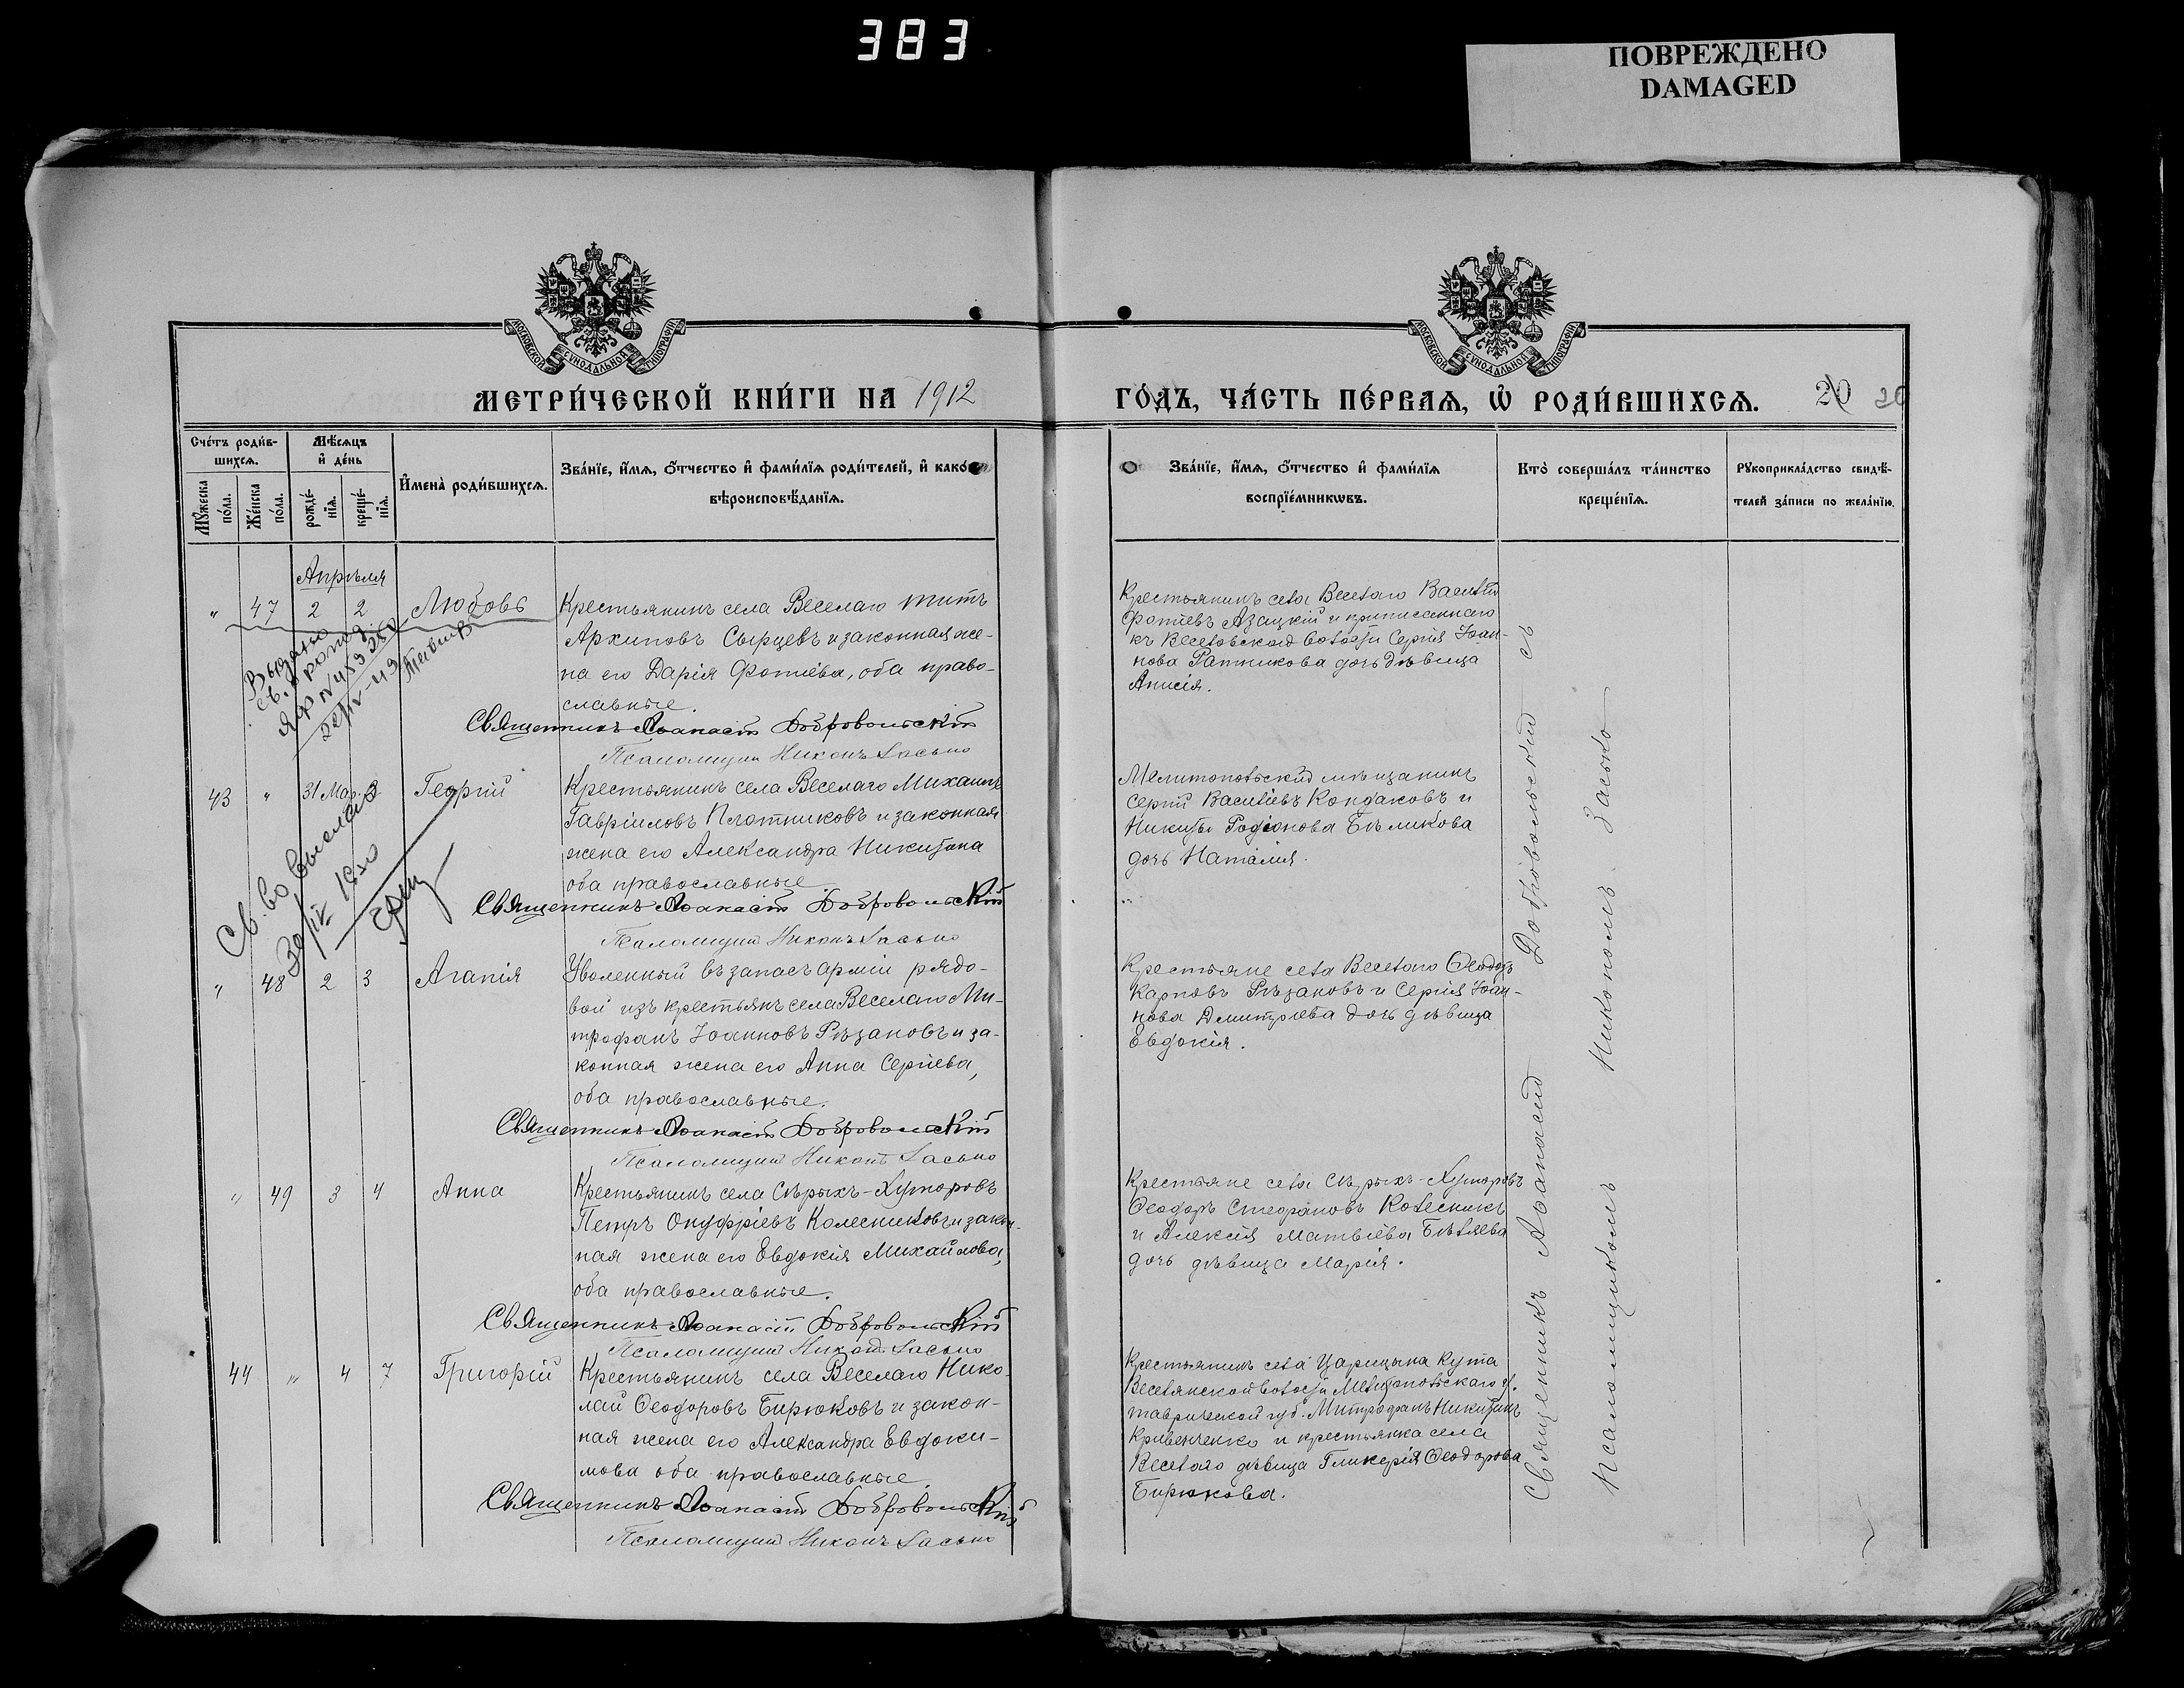 383
ПОВРЕЖДЕНО
DAMAGED
МОСКОВСКОЙ СѴНОДАЛЬНОЙ ТИПОГРАФІИ
МОСКОВСКОЙ СѴНОДАЛЬНОЙ ТИПОГРАФІИ
МЕТРИ́ЧЕСКОЙ КНИ́ГИ НА 1912
ГО́ДЪ, ЧА́СТЬ ПЕ́РВАѦ, Ѽ РОДИ́ВШИХСѦ. 20 20
Сче́тъ роди́в-
шихсѧ.
Мѣ́сѧцъ
и҆ де́нь
Мꙋ́жеска
по́ла.
Же́нска
по́ла.
рожде́-
нїѧ.
креще́-
нїѧ.
И҆мена̀ роди́вшихсѧ.
Зва́нїе, и҆́мѧ, ѻ҆́тчество и҆ фами́лїѧ роди́телей, и҆ како́
вѣроисповѣ́данїѧ.
Зва́нїе, и҆́мѧ, ѻ҆́тчество и҆ фами́лїѧ
воспрїе́мникѡвъ.
Кто̀ соверша́лъ та́инство
креще́нїѧ.
Рꙋкоприкла́дство свидѣ́-
телей за́писи по жела́нїю.
Апрѣля
" 47 2 2 Любовь
Крестьянинъ села Веселаго Титъ
Архиповъ Сырцевъ и законная же-
на его Дарія Фотіева, оба право-
славные.
Священникъ Аѳанасій Добровольскій
Псаломщикъ Никонъ Засько
Выдано
св. о рожд.
ЯФ №453250
Крестьянинъ села Веселаго Василій
Фотіевъ Азацкій и приписаннаго
къ Веселовской волости Сергія Іоан-
нова Ратникова дочь дѣвица
Анисія.
43 " 31 Мар. 2 Георгій
Крестьянинъ села Веселаго Михаилъ
Гавріиловъ Плотниковъ и законная
жена его Александра Никитина
оба православные
Священникъ Аѳанасій Добровольскій
Псаломщикъ Никонъ Засько
Св-во выслано
Мелитопольскій мѣщанинъ
Сергій Васильевъ Кондаковъ и
Никиты Родіонова Бѣликова
дочь Наталія.
" 48 2 3 Агапія
Уволенный въ запасъ арміи рядо-
вой изъ крестьянъ села Веселаго Ми-
трофанъ Іоанновъ Рѣзановъ и за-
конная жена его Анна Сергіева,
оба православные.
Священникъ Аѳанасій Добровольскій
Псаломщикъ Никонъ Засько
Крестьяне села Веселаго Ѳеодотъ
Карповъ Рѣзановъ и Сергія Іоан-
нова Дмитріева дочь дѣвица
Евдокія.
" 49 3 4 Анна
Крестьянинъ села Сѣрыхъ-Хуторовъ
Петръ Онуфріевъ Колесниковъ и закон-
ная жена его Евдокія Михайлова,
оба православные.
Священникъ Аѳанасій Добровольскій
Псаломщикъ Никонъ Засько
Крестьяне села Сѣрыхъ-Хуторовъ
Ѳеодоръ Стефановъ Колесникъ
и Алексія Матвіева Бѣляева
дочь дѣвица Марія.
44 " 4 7 Григорій
Крестьянинъ села Веселаго Нико-
лай Ѳеодоровъ Бирюковъ и закон-
ная жена его Александра Евдоки-
мова оба православные
Священникъ Аѳанасій Добровольскій
Псаломщикъ Никонъ Засько
Крестьянинъ села Царицына Кута
Веселянской волости Мелитопольскаго у.
таврической губ. Митрофанъ Никитинъ
Кривенченко и крестьянка села
Веселаго дѣвица Гликерія Ѳеодорова
Бирюкова.
Священникъ Аѳанасій Добровольскій съ
Псаломщикомъ Никономъ Засько